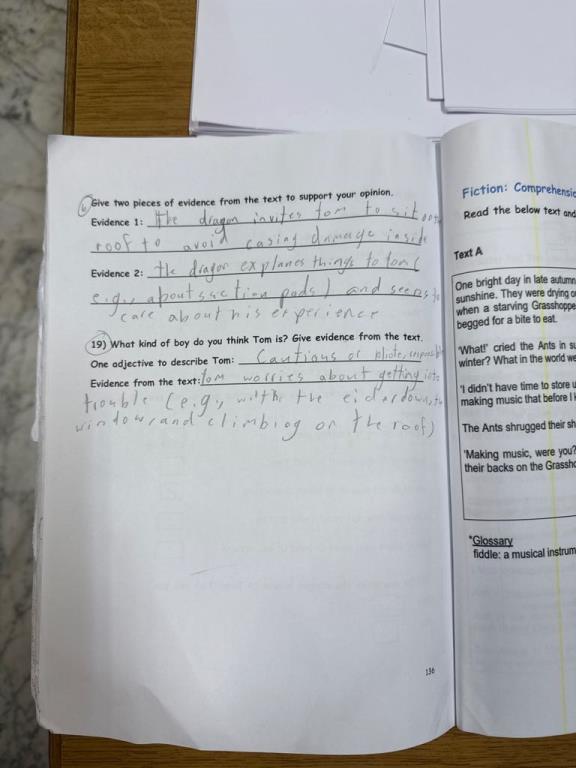 Give two pieces of evidence from the text to support your opinion.
Evidence 1: the dragon invites tom to sit
roof to avoid casing damage inside
Evidence 2: the dragon explanes things to tom (
e.g., about suction pads) and seems to
care about his experience
19) What kind of boy do you think Tom is? Give evidence from the text.
One adjective to describe Tom: Cautious or
Evidence from the text: tom worries about getting into
trouble (e.g., with the eiderdown, the
window, and climbing on the roof)
136
Fiction: Comprehensio
Read the below text and
Text A
One bright day in late autumn
sunshine. They were drying o
when a starving Grasshoppe
begged for a bite to eat.
'What!' cried the Ants in su
winter? What in the world we
'I didn't have time to store u
making music that before I k
The Ants shrugged their sh
'Making music, were you?
their backs on the Grassho
*Glossary
fiddle: a musical instrum